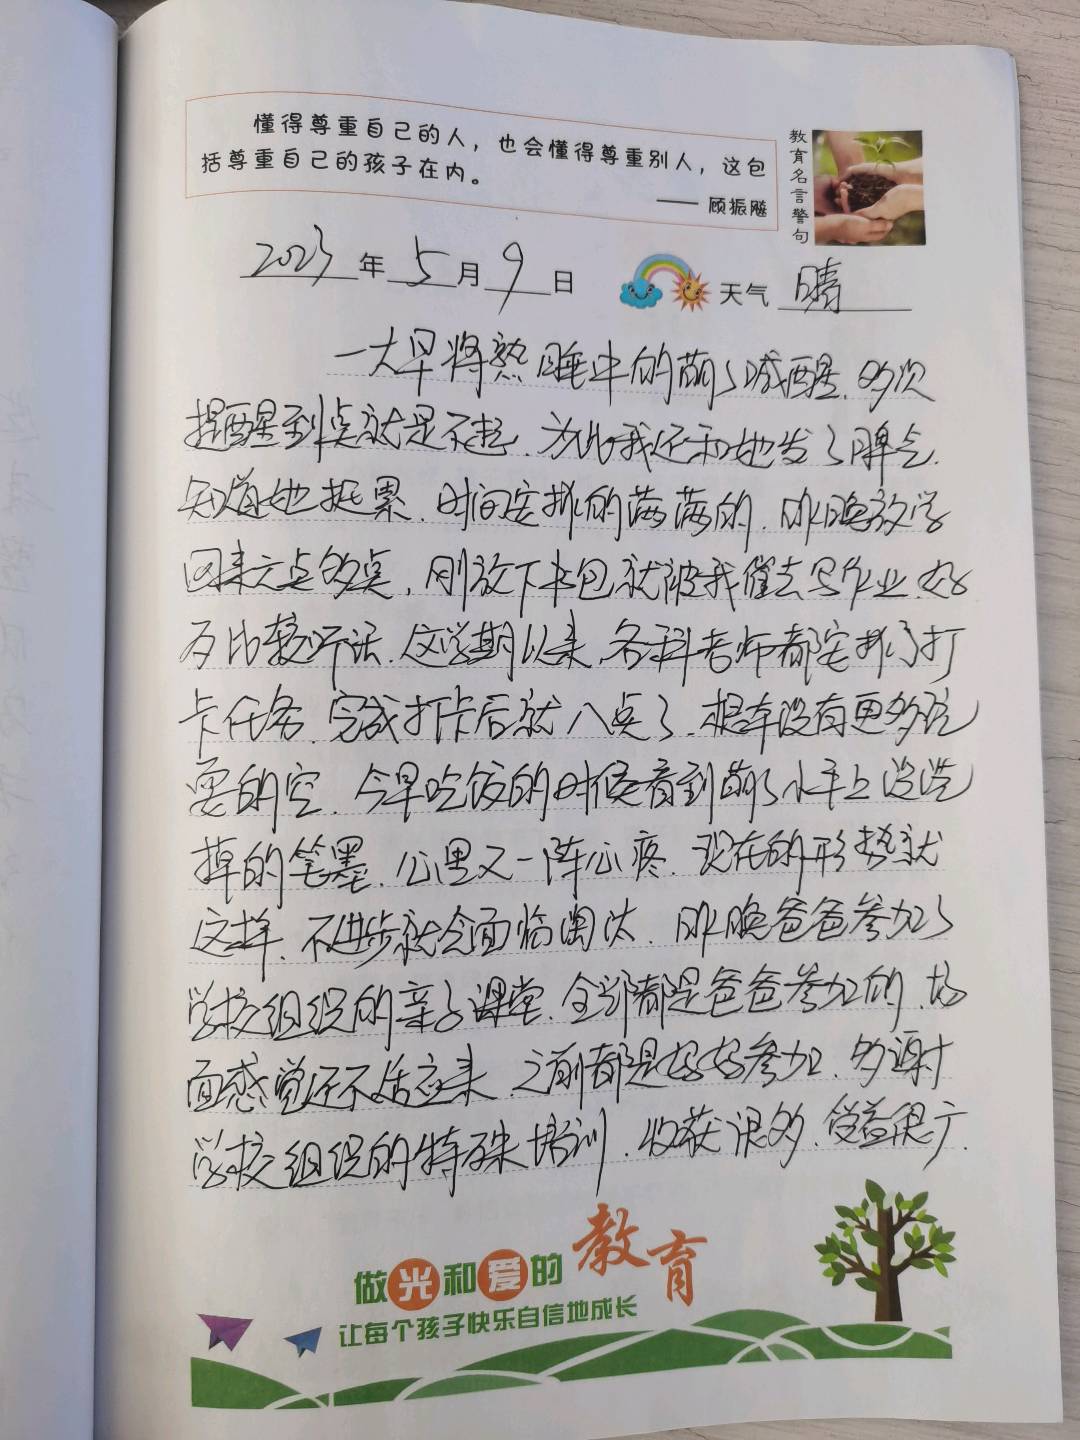 懂得尊重自己的人，也会懂得尊重别人，这包
括尊重自己的孩子在内。
—— 顾振飚
教育名言警句
2023年5月9日 天气 晴
一大早将熟睡中的萌了喊醒.多次
提醒到点就是不起.为此我还和她发了脾气.
知道她挺累.时间安排的满满的.昨晚放学
回来六点多点,刚放下书包就被我催去写作业.好
在比较听话.这学期以来.各科老师都安排了打
卡任务.完成打卡后就八点了.根本没有更多玩
耍的空.今早吃饭的时候看到萌了小手上没洗
掉的笔墨.心里又一阵心疼.现在的形势就
这样、不进步就会面临淘汰.昨晚爸爸参加了
学校组织的亲子课堂.全部都是爸爸参加的.场
面感觉还不适应来.之前都是妈妈参加.多谢
学校组织的特殊培训.收获很多.受益很广.
做光和爱的教育
让每个孩子快乐自信地成长